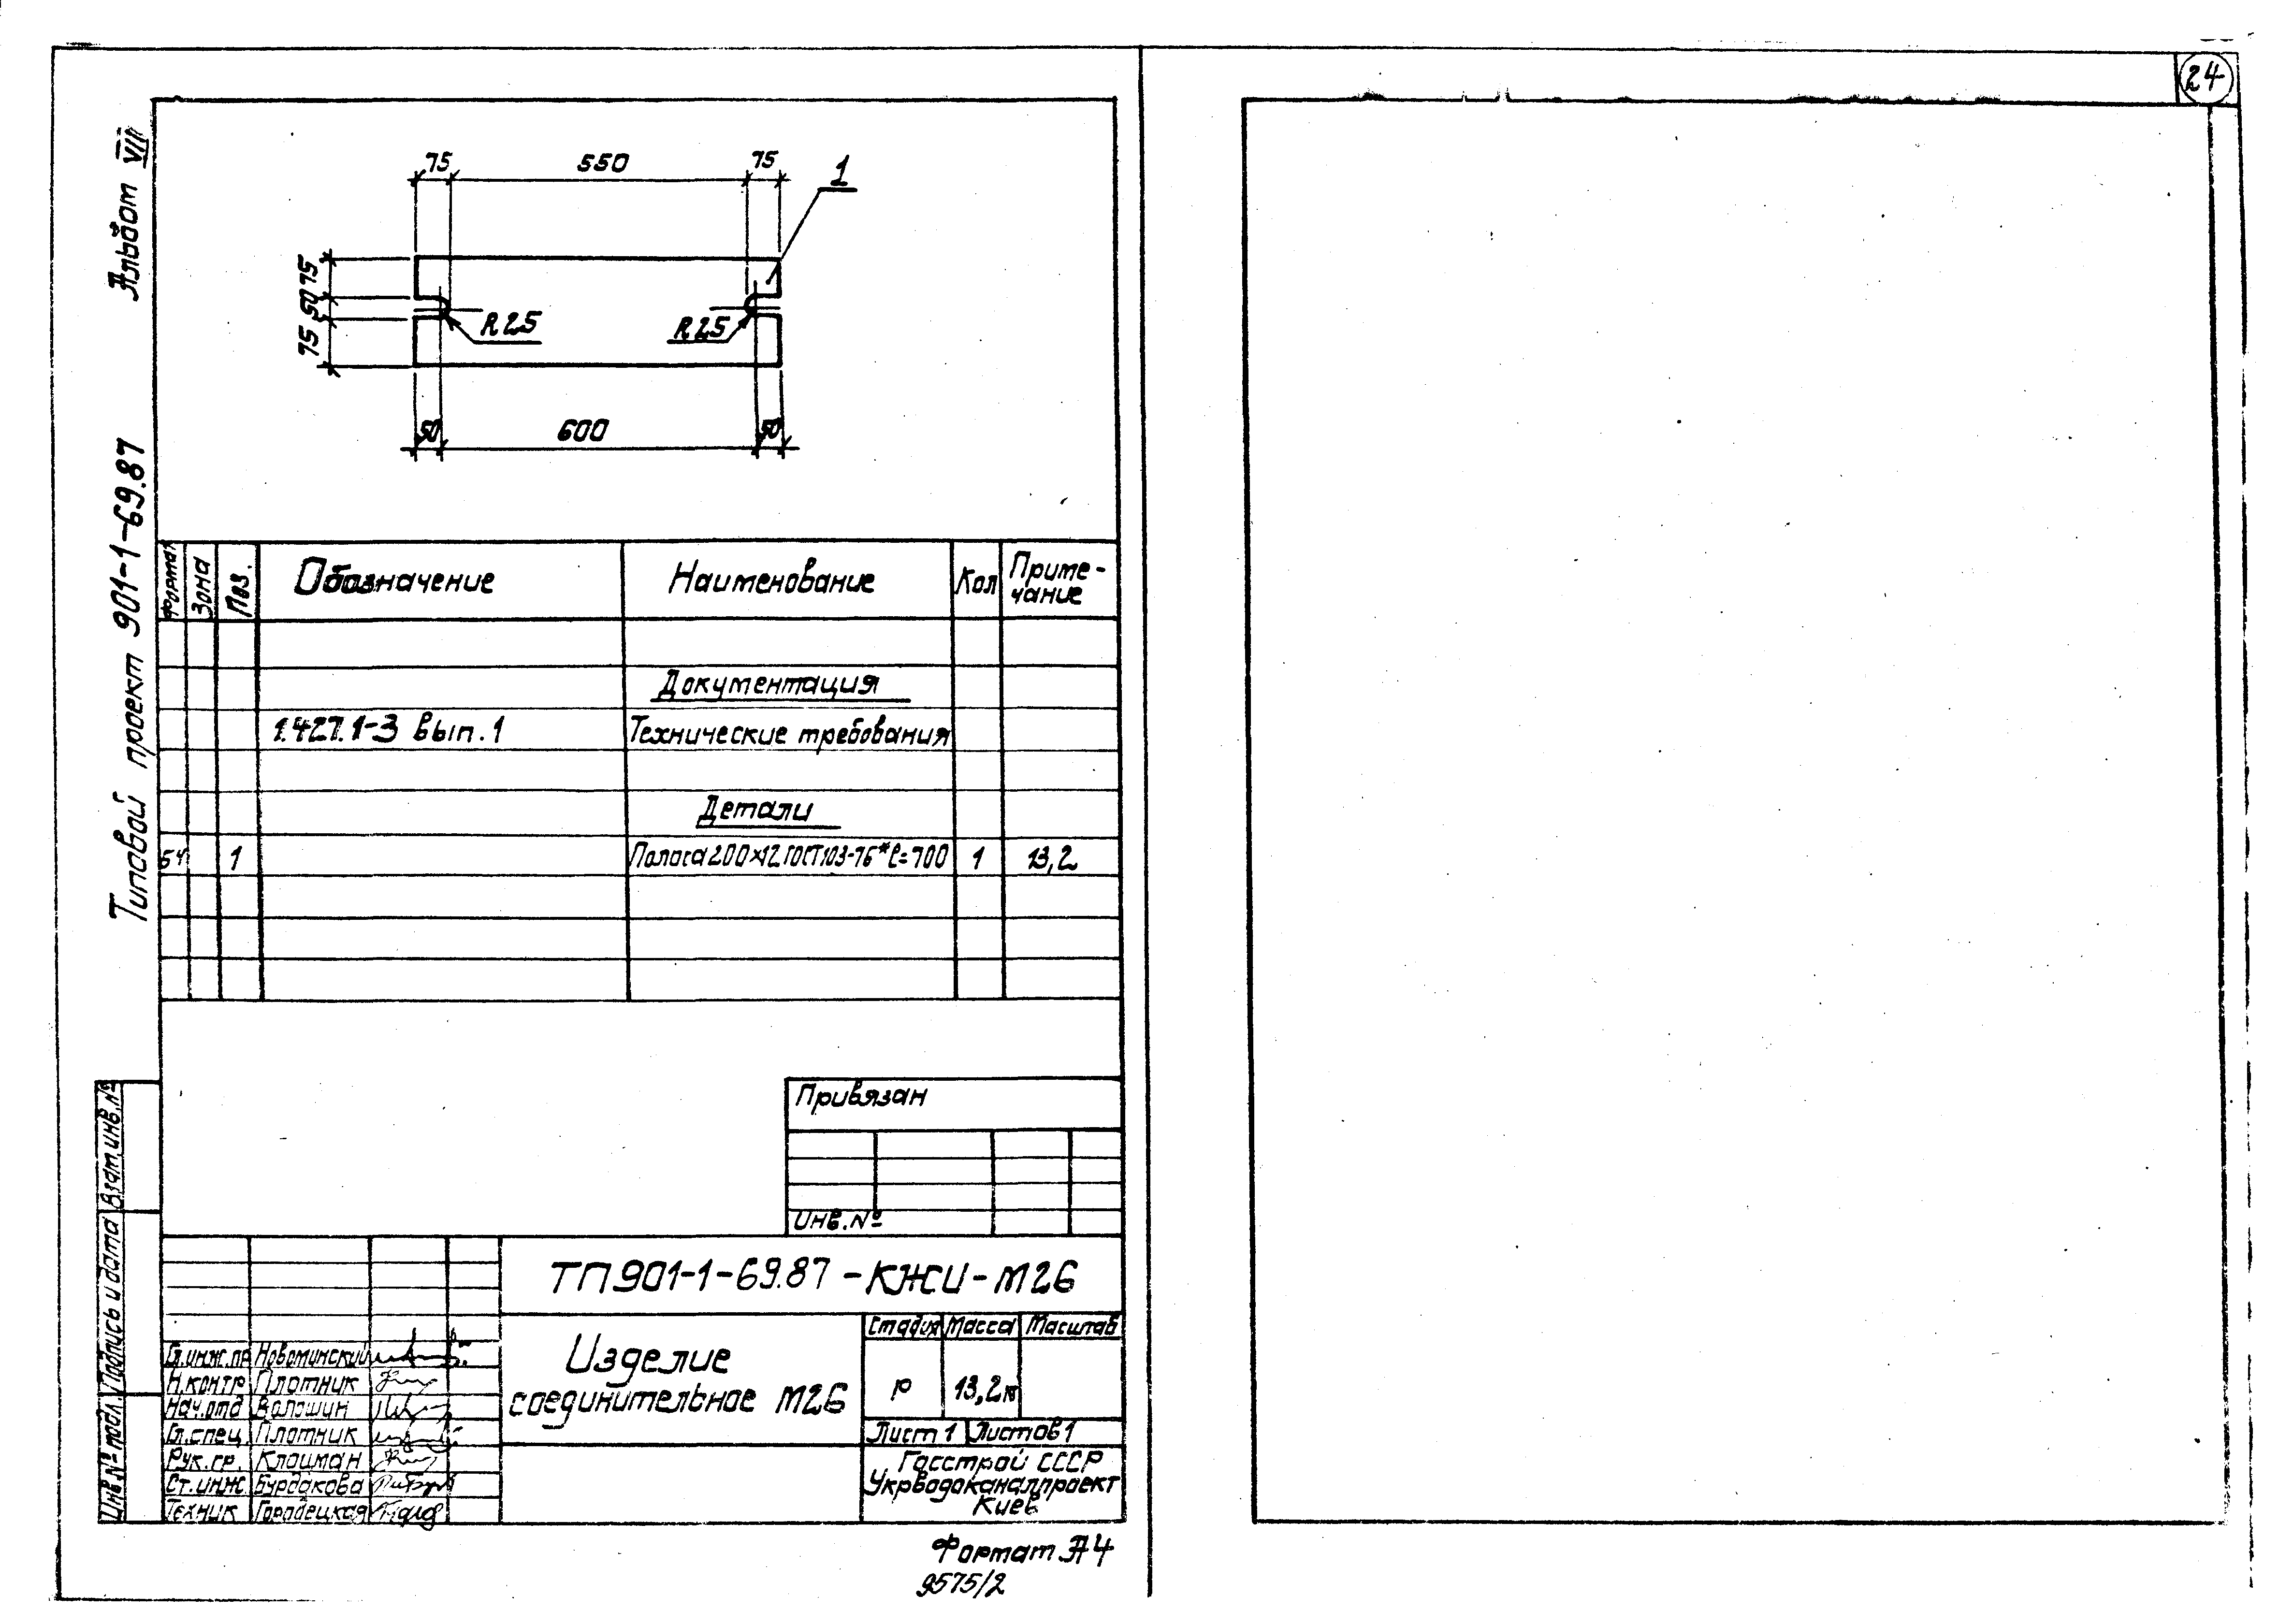 24
Альбом VII
Типовой проект 901-1-69.87
75 550 75
1
75
50
75
R25 R25
50 600 50
Формат Зона Поз. Обозначение Наименование Кол Приме-
чание
Документация
1.427.1-3 вып.1 Технические требования
Детали
БЧ 1 Полоса 200×12 ГОСТ103-76* ℓ=700 1 13,2
Привязан
Инв.№
Взам.инв.№
Подпись и дата
Инв.№ подл.
ТП901-1-69.87-КЖИ-М26
Изделие
соединительное М26
Стадия Масса Масштаб
Р 13,2кг
Лист 1 Листов 1
Госстрой СССР
Укрводоканалпроект
Киев
Гл.инж.пр Новоминский
Н.контр Плотник
Нач.отд Волошин
Гл.спец. Плотник
Рук.гр. Клоцман
Ст.инж. Бурдакова
Техник Городецкая
Формат А4
9575/2